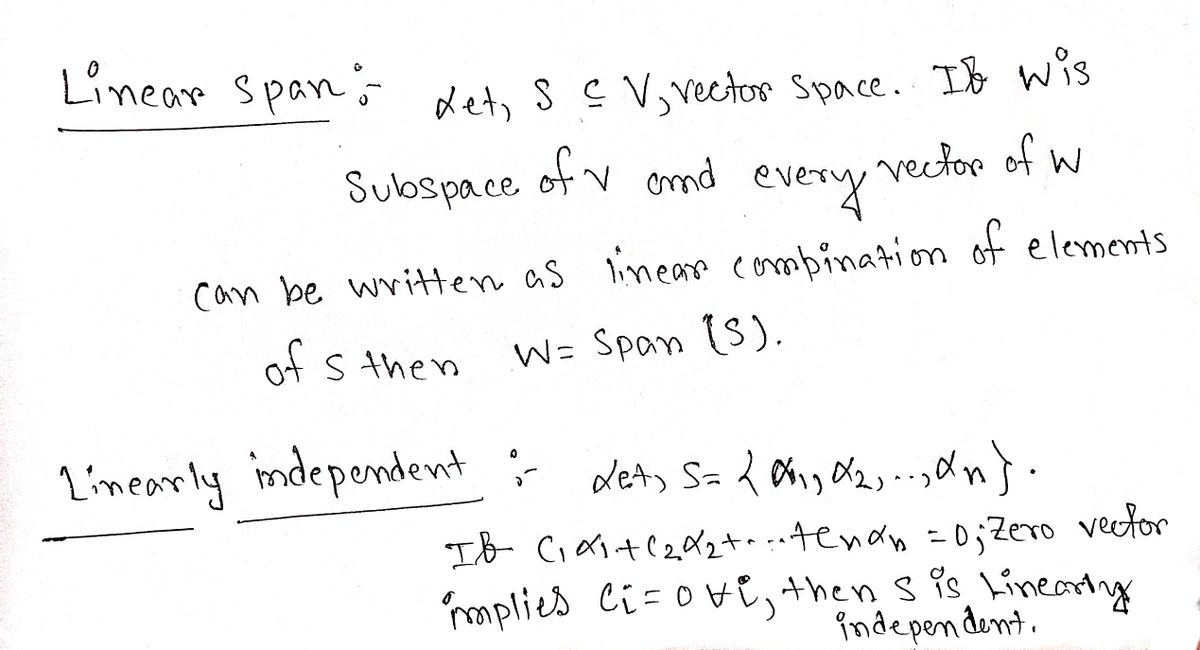 Linear span :- Let, S ⊆ V, vector space. If W is
Subspace of V and every vector of W
can be written as linear combination of elements
of S then W = Span (S).
Linearly independent :- Let, S = {α1, α2, .., αn}.
If C1α1+C2α2+...+Cnαn = 0; Zero vector
implies Ci = 0 ∀i, then S is Linearly
independent.